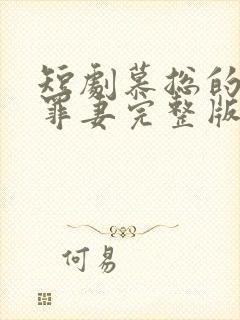 短劇慕总的
罪妻完整版
何易